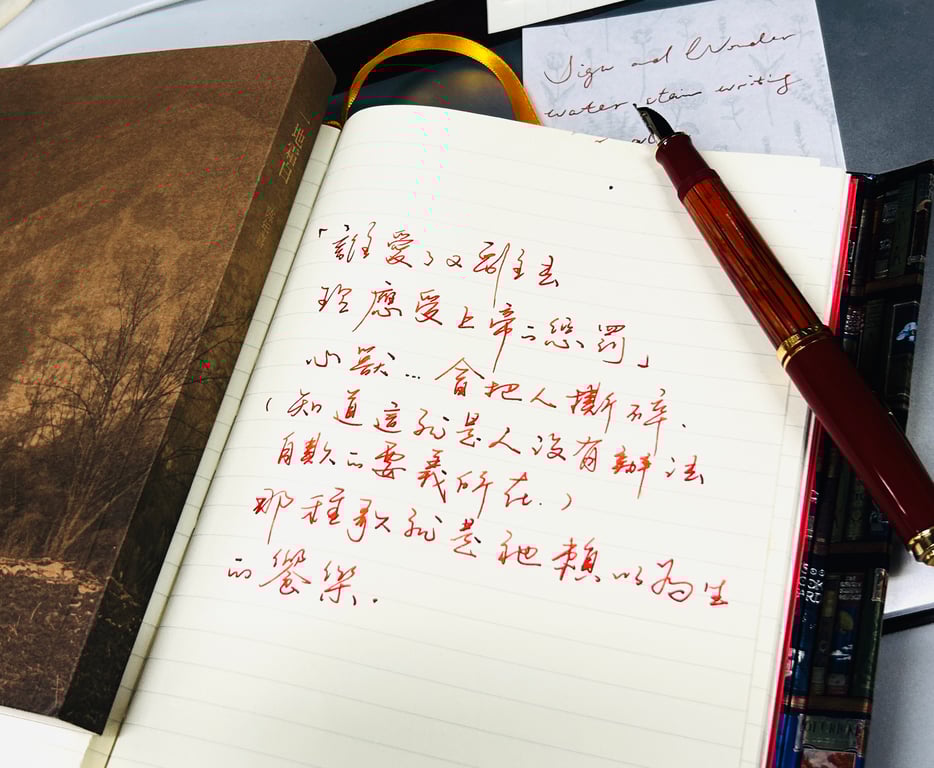 Sign and Wonder
water stain writing
「誰愛了又離去
理應受上帝的懲罰」
心獸…會把人撕碎.
(知道這就是人沒有辦法
自欺的要義所在.)
那種歌就是牠賴以為生
的饗粢.